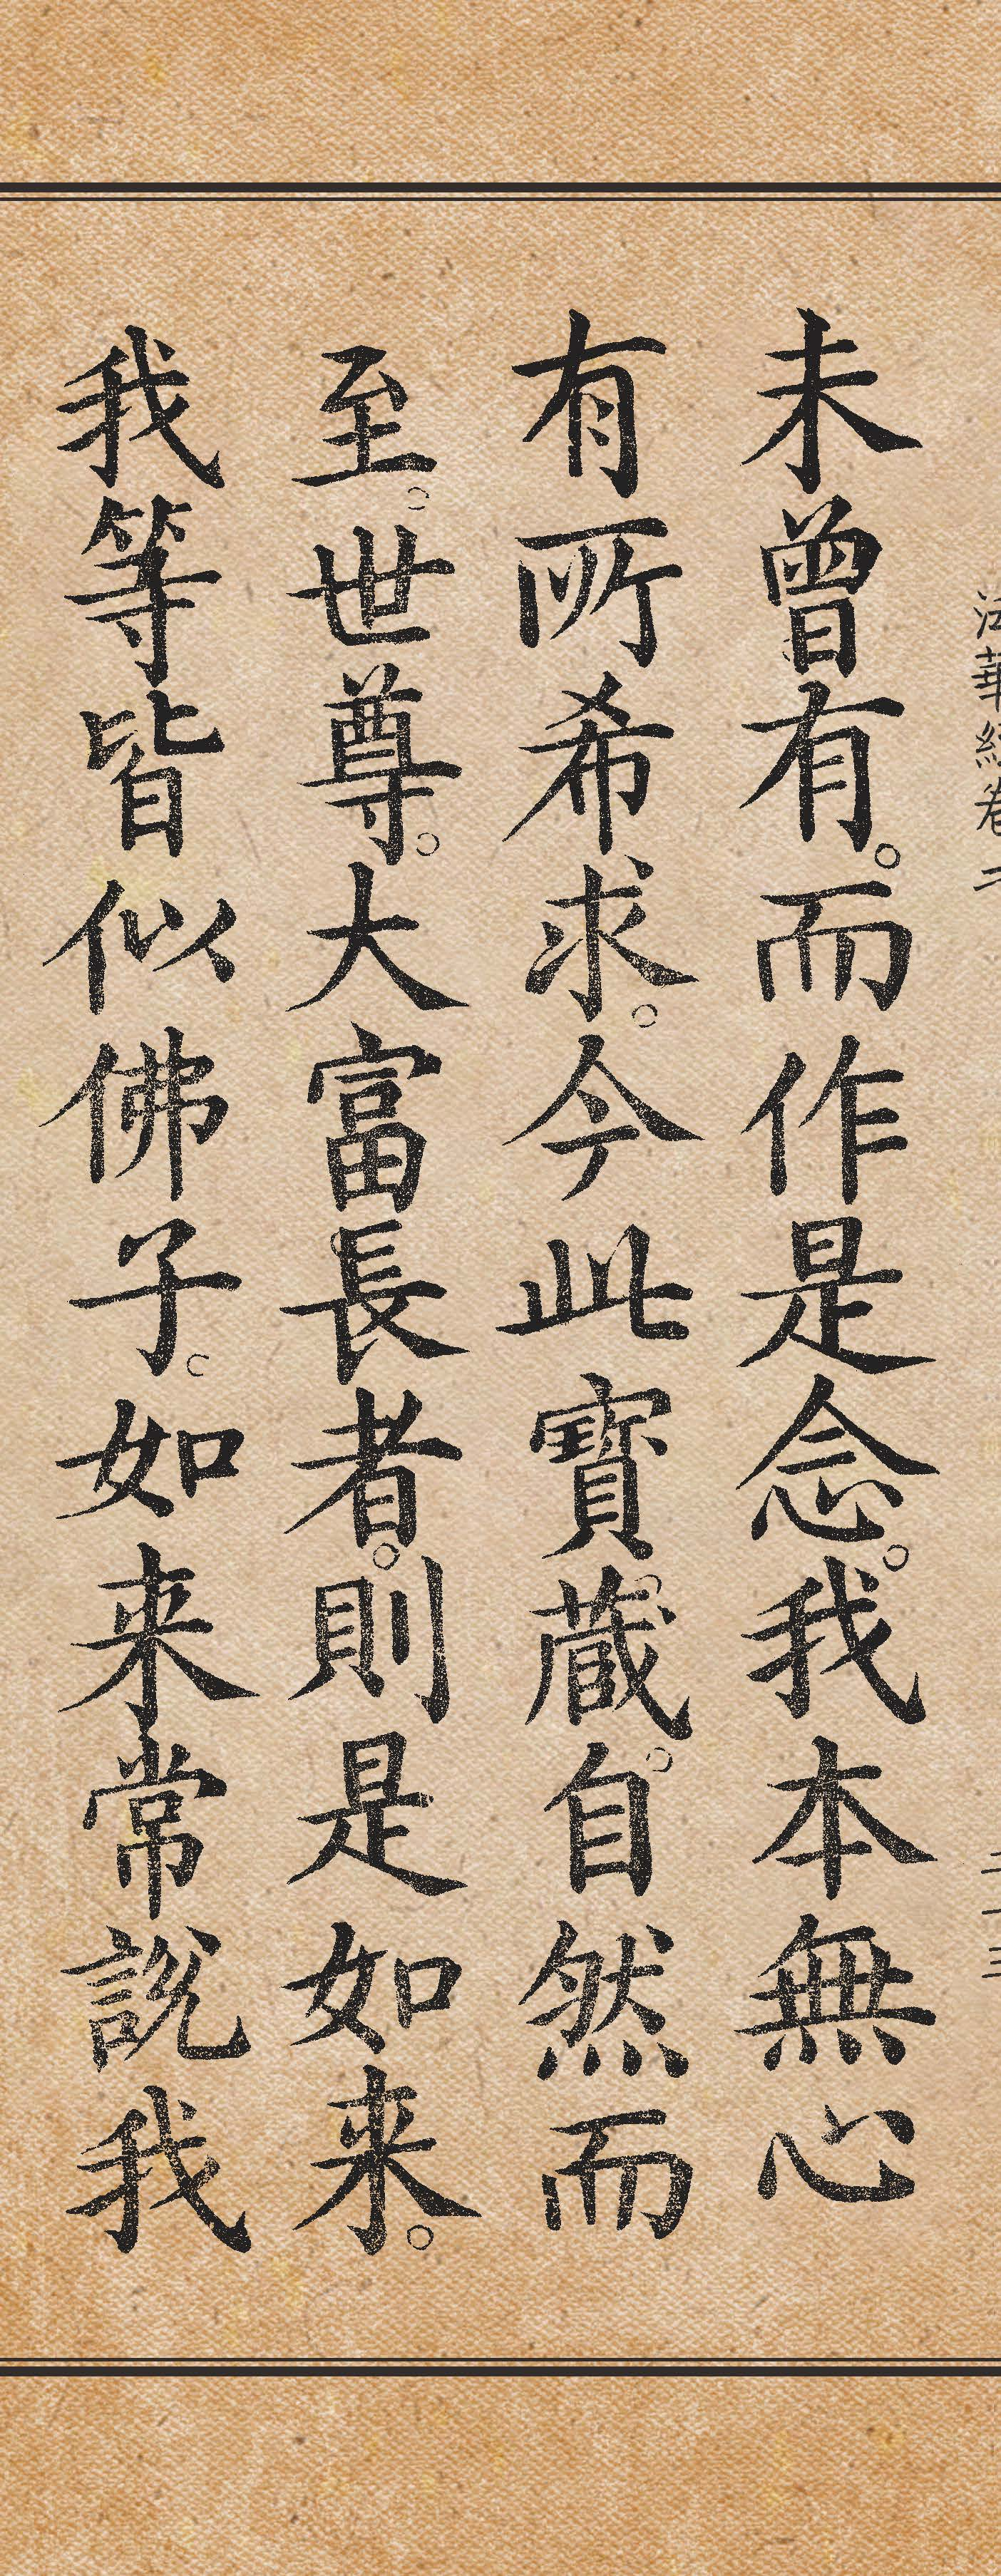 法華經卷二
二十三
未曾有。而作是念。我本無心
有所希求。今此寶藏。自然而
至。世尊。大富長者。則是如来。
我等皆似佛子。如来常説我